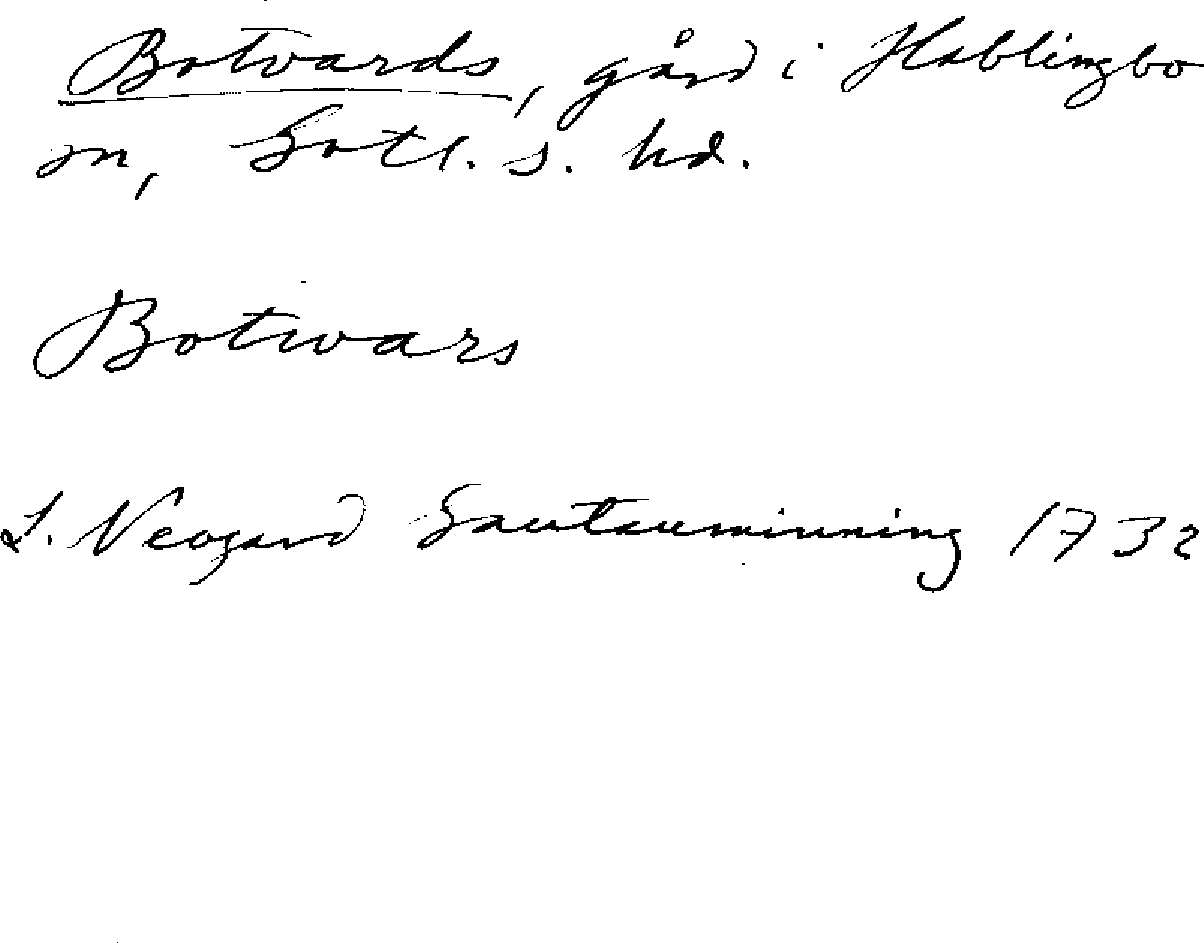 Botvards, gård i Hablingbo
sn, Gotl. s. hd.
Botwars
L. Neogard Gautauminning 1732